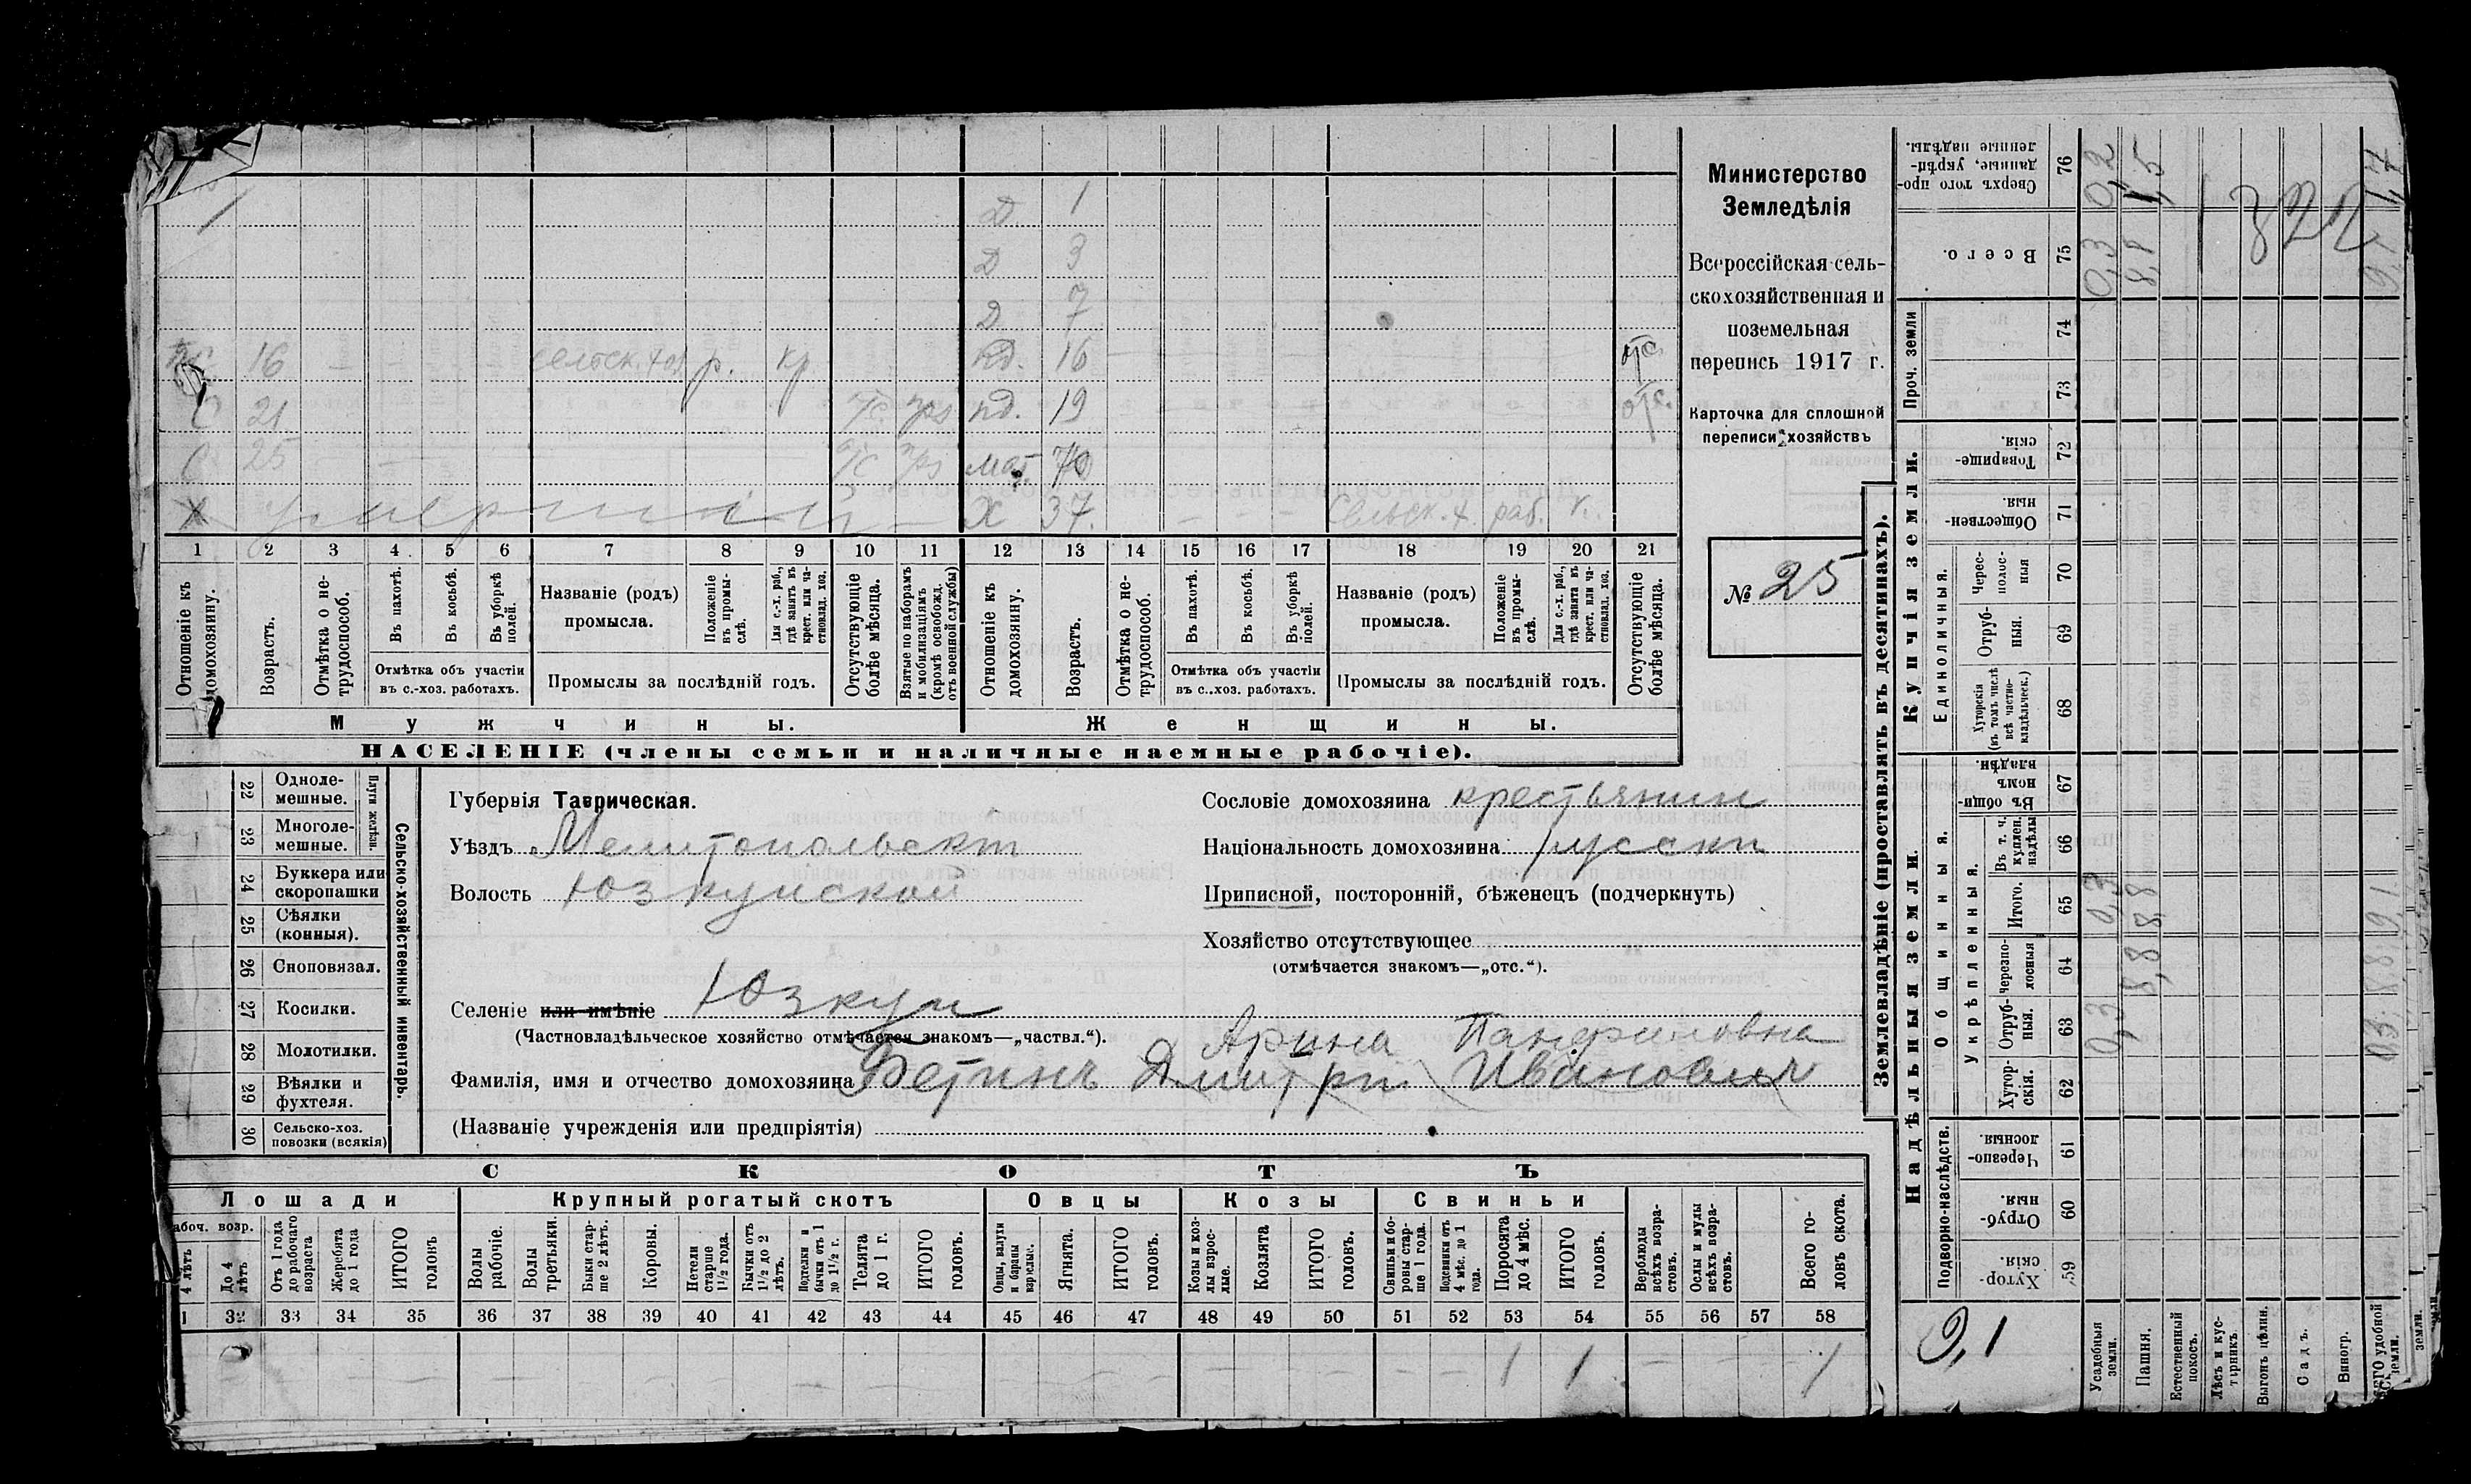 Д 1
Д 3
Д 7
16 сельск. р. кр. пд. 16 отс.
С 21 отс пд. 19 отс.
С 25 мат. 70
Х умерший Х 37. сельск. х. раб. к.
1 2 3 4 5 6 7 8 9 10 11 12 13 14 15 16 17 18 19 20 21
Отношеніе къ домохозяину.
Возрастъ.
Отмѣтка о нетрудоспособ.
Въ пахотѣ.
Въ косьбѣ.
Въ уборкѣ полей.
Отмѣтка объ участіи въ с.-хоз. работахъ.
Названіе (родъ) промысла.
Положеніе въ промыслѣ.
Для с.-х. раб., гдѣ занятъ въ крест. или частновлад. хоз.
Промыслы за послѣдній годъ.
Отсутствующіе болѣе мѣсяца.
Взятые по наборамъ и мобилизаціямъ (кромѣ освобожд. отъ военной службы)
Отношеніе къ домохозяину.
Возрастъ.
Отмѣтка о нетрудоспособ.
Въ пахотѣ.
Въ косьбѣ.
Въ уборкѣ полей.
Отмѣтка объ участіи въ с.-хоз. работахъ.
Названіе (родъ) промысла.
Положеніе въ промыслѣ.
Для с.-х. раб., гдѣ занята въ крест. или частновлад. хоз.
Промыслы за послѣдній годъ.
Отсутствующіе болѣе мѣсяца.
Мужчины. Женщины.
НАСЕЛЕНІЕ (члены семьи и наличные наемные рабочіе).
Министерство
Земледѣлія
Всероссійская сель-
скохозяйственная и
поземельная
перепись 1917 г.
Карточка для сплошной
переписи хозяйствъ
№ 25
Сельско-хозяйственный инвентарь.
Плуги желѣзн.
22 Одноле-
мешные.
23 Многоле-
мешные.
24 Буккера или
скоропашки
25 Сѣялки
(конныя).
26 Сноповязал.
27 Косилки.
28 Молотилки.
29 Вѣялки и
фухтеля.
30 Сельско-хоз.
повозки (всякія)
Губернія Таврическая.
Уѣздъ Мелитопольскій
Волость Юзкуйской
Селеніе или имѣніе Юзкуи
(Частновладѣльческое хозяйство отмѣчается знакомъ—„частвл.“).
Сословіе домохозяина крестьянин
Національность домохозяина русски
Приписной, посторонній, бѣженецъ (подчеркнуть)
Хозяйство отсутствующее
(отмѣчается знакомъ—„отс.“).
Арина Панфиловна
Фамилія, имя и отчество домохозяина Фетинъ Дмитри Иванович
(Названіе учрежденія или предпріятія)
СКОТЪ
Лошади Крупный рогатый скотъ Овцы Козы Свиньи
абоч. возр.
4 лѣтъ
До 4 лѣтъ
Отъ 1 года до рабочаго возраста
Жеребята до 1 года
ИТОГО головъ
Волы рабочіе.
Волы третьяки.
Быки старше 2 лѣтъ.
Коровы.
Нетели старше 1½ года.
Бычки отъ 1½ до 2 лѣтъ.
Подтелки и бычки отъ 1 до 1½ г.
Телята до 1 г.
ИТОГО головъ.
Овцы, валухи и бараны взрослые.
Ягнята.
ИТОГО головъ.
Козы и козлы взрослые.
Козлята
ИТОГО головъ.
Свиньи и боровы старше 1 года.
Подсвинки отъ 4 мѣс. до 1 года.
Поросята до 4 мѣс.
ИТОГО головъ.
Верблюды всѣхъ возрастовъ.
Ослы и мулы всѣхъ возрастовъ.
Всего головъ скота.
1 32 33 34 35 36 37 38 39 40 41 42 43 44 45 46 47 48 49 50 51 52 53 54 55 56 57 58
1 1 — — 1
Землевладѣніе (проставлять въ десятинахъ).
Купчія земли.
Надѣльныя земли.
Сверхъ того проданные, укрѣпленные надѣлы. 76 0,2 1,5 1,7
Всего. 75 0,3 8,8 9,1
Проч. земли 74
73
Товарищескія. 72
Общественныя. 71
Единоличныя.
Чересполосныя 70
Отрубныя. 69
Хуторскія (въ томъ числѣ всѣ частновладѣльческ.) 68
Общинныя.
Въ общинномъ владѣн. 67
Укрѣпленныя.
Въ т. ч. куплен. надѣлы 66
Итого. 65 0,3 8,8 9,1
Черезполосныя 64 8,8 8,8
Отрубныя. 63 0,3 0,3
Хуторскія. 62
Подворно-наслѣдств.
Черезполосныя. 61
Отрубныя. 60
Хуторскія. 59
9,1
Усадебныя земли.
Пашня.
Естественный покосъ.
Лѣсъ и кустарникъ.
Выгонъ цѣлин.
Садъ.
Виногр.
ВСЕГО удобной земли.
земли.